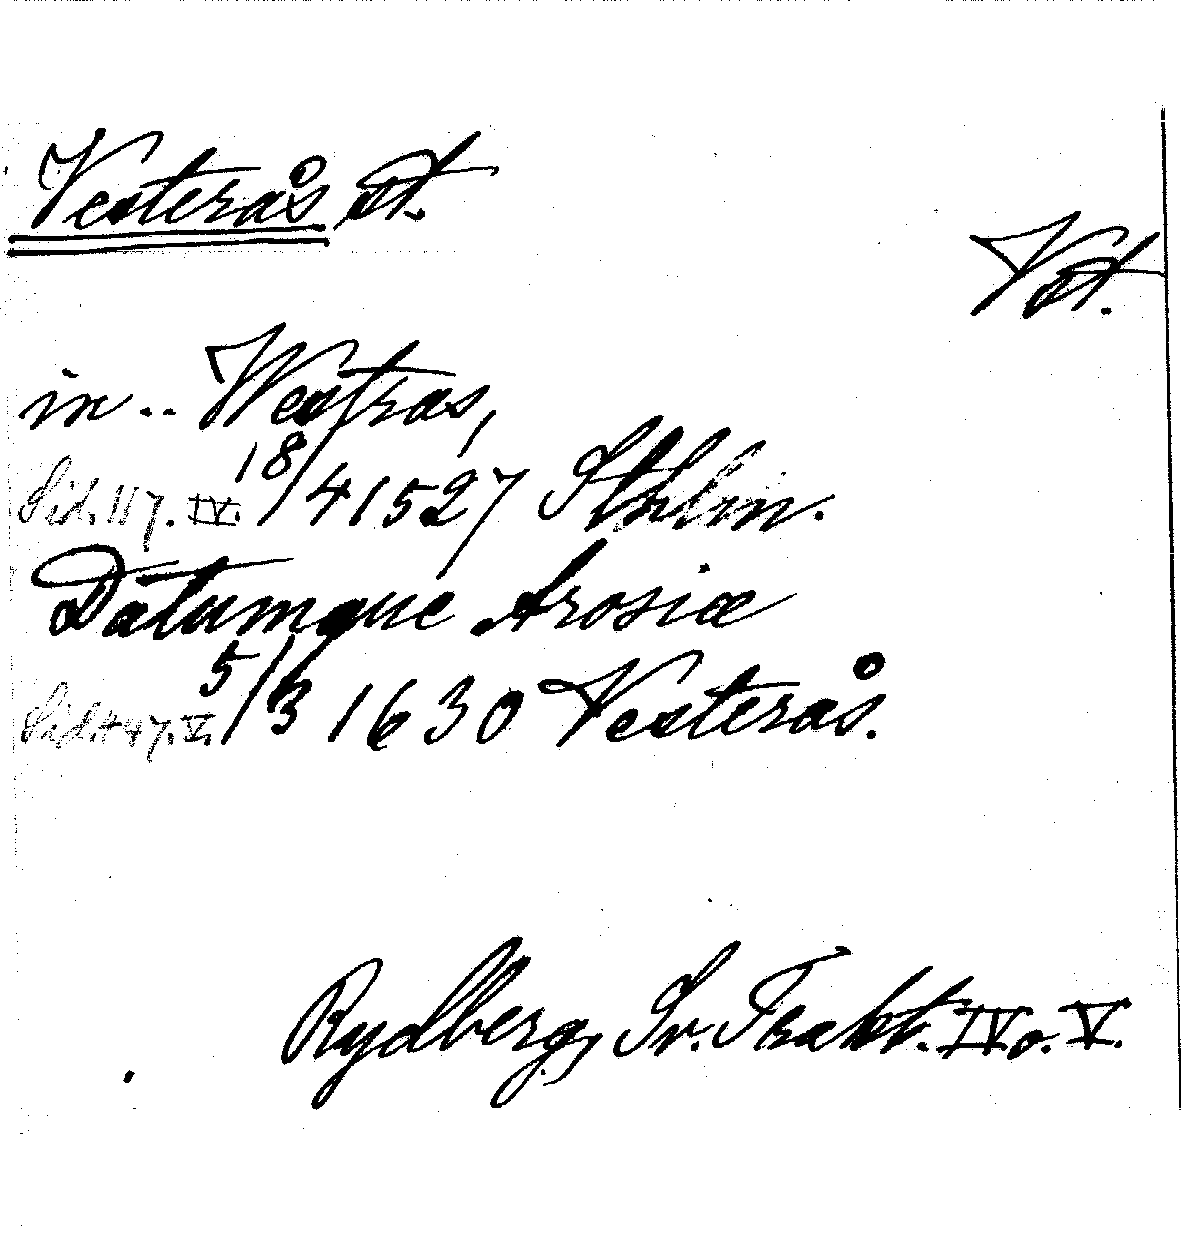 Vesterås st.
Vst.
in .. Westras,
Sid. 117. IV. 18/4 1527 Sthlm.
Datumque Arosiæ
Sid. 447. V. 5/3 1630 Vesterås.
Rydberg, Sv. Trakt. IV o. V.